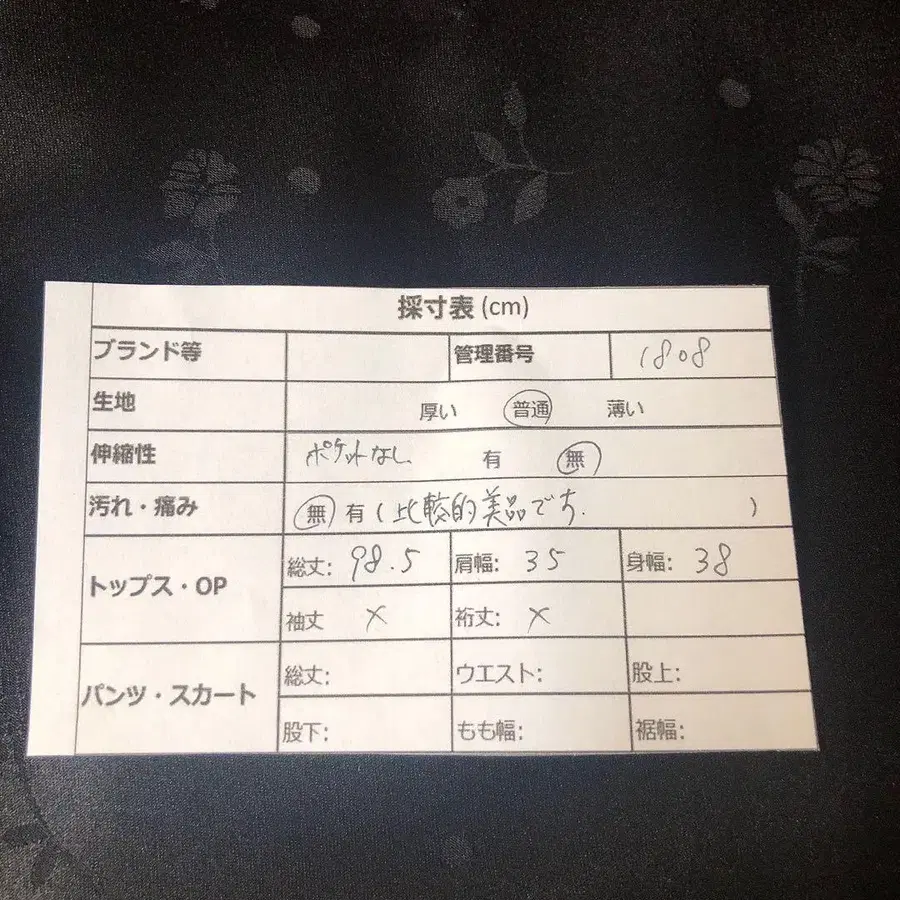 採寸表 (cm)
ブランド等 管理番号 1808
生地 厚い 普通 薄い
伸縮性 ポケットなし 有 無
汚れ・痛み 無 有 ( 比較的美品です. )
トップス・OP
総丈: 98.5 肩幅: 35 身幅: 38
袖丈 × 裄丈: ×
パンツ・スカート
総丈: ウエスト: 股上:
股下: もも幅: 裾幅: